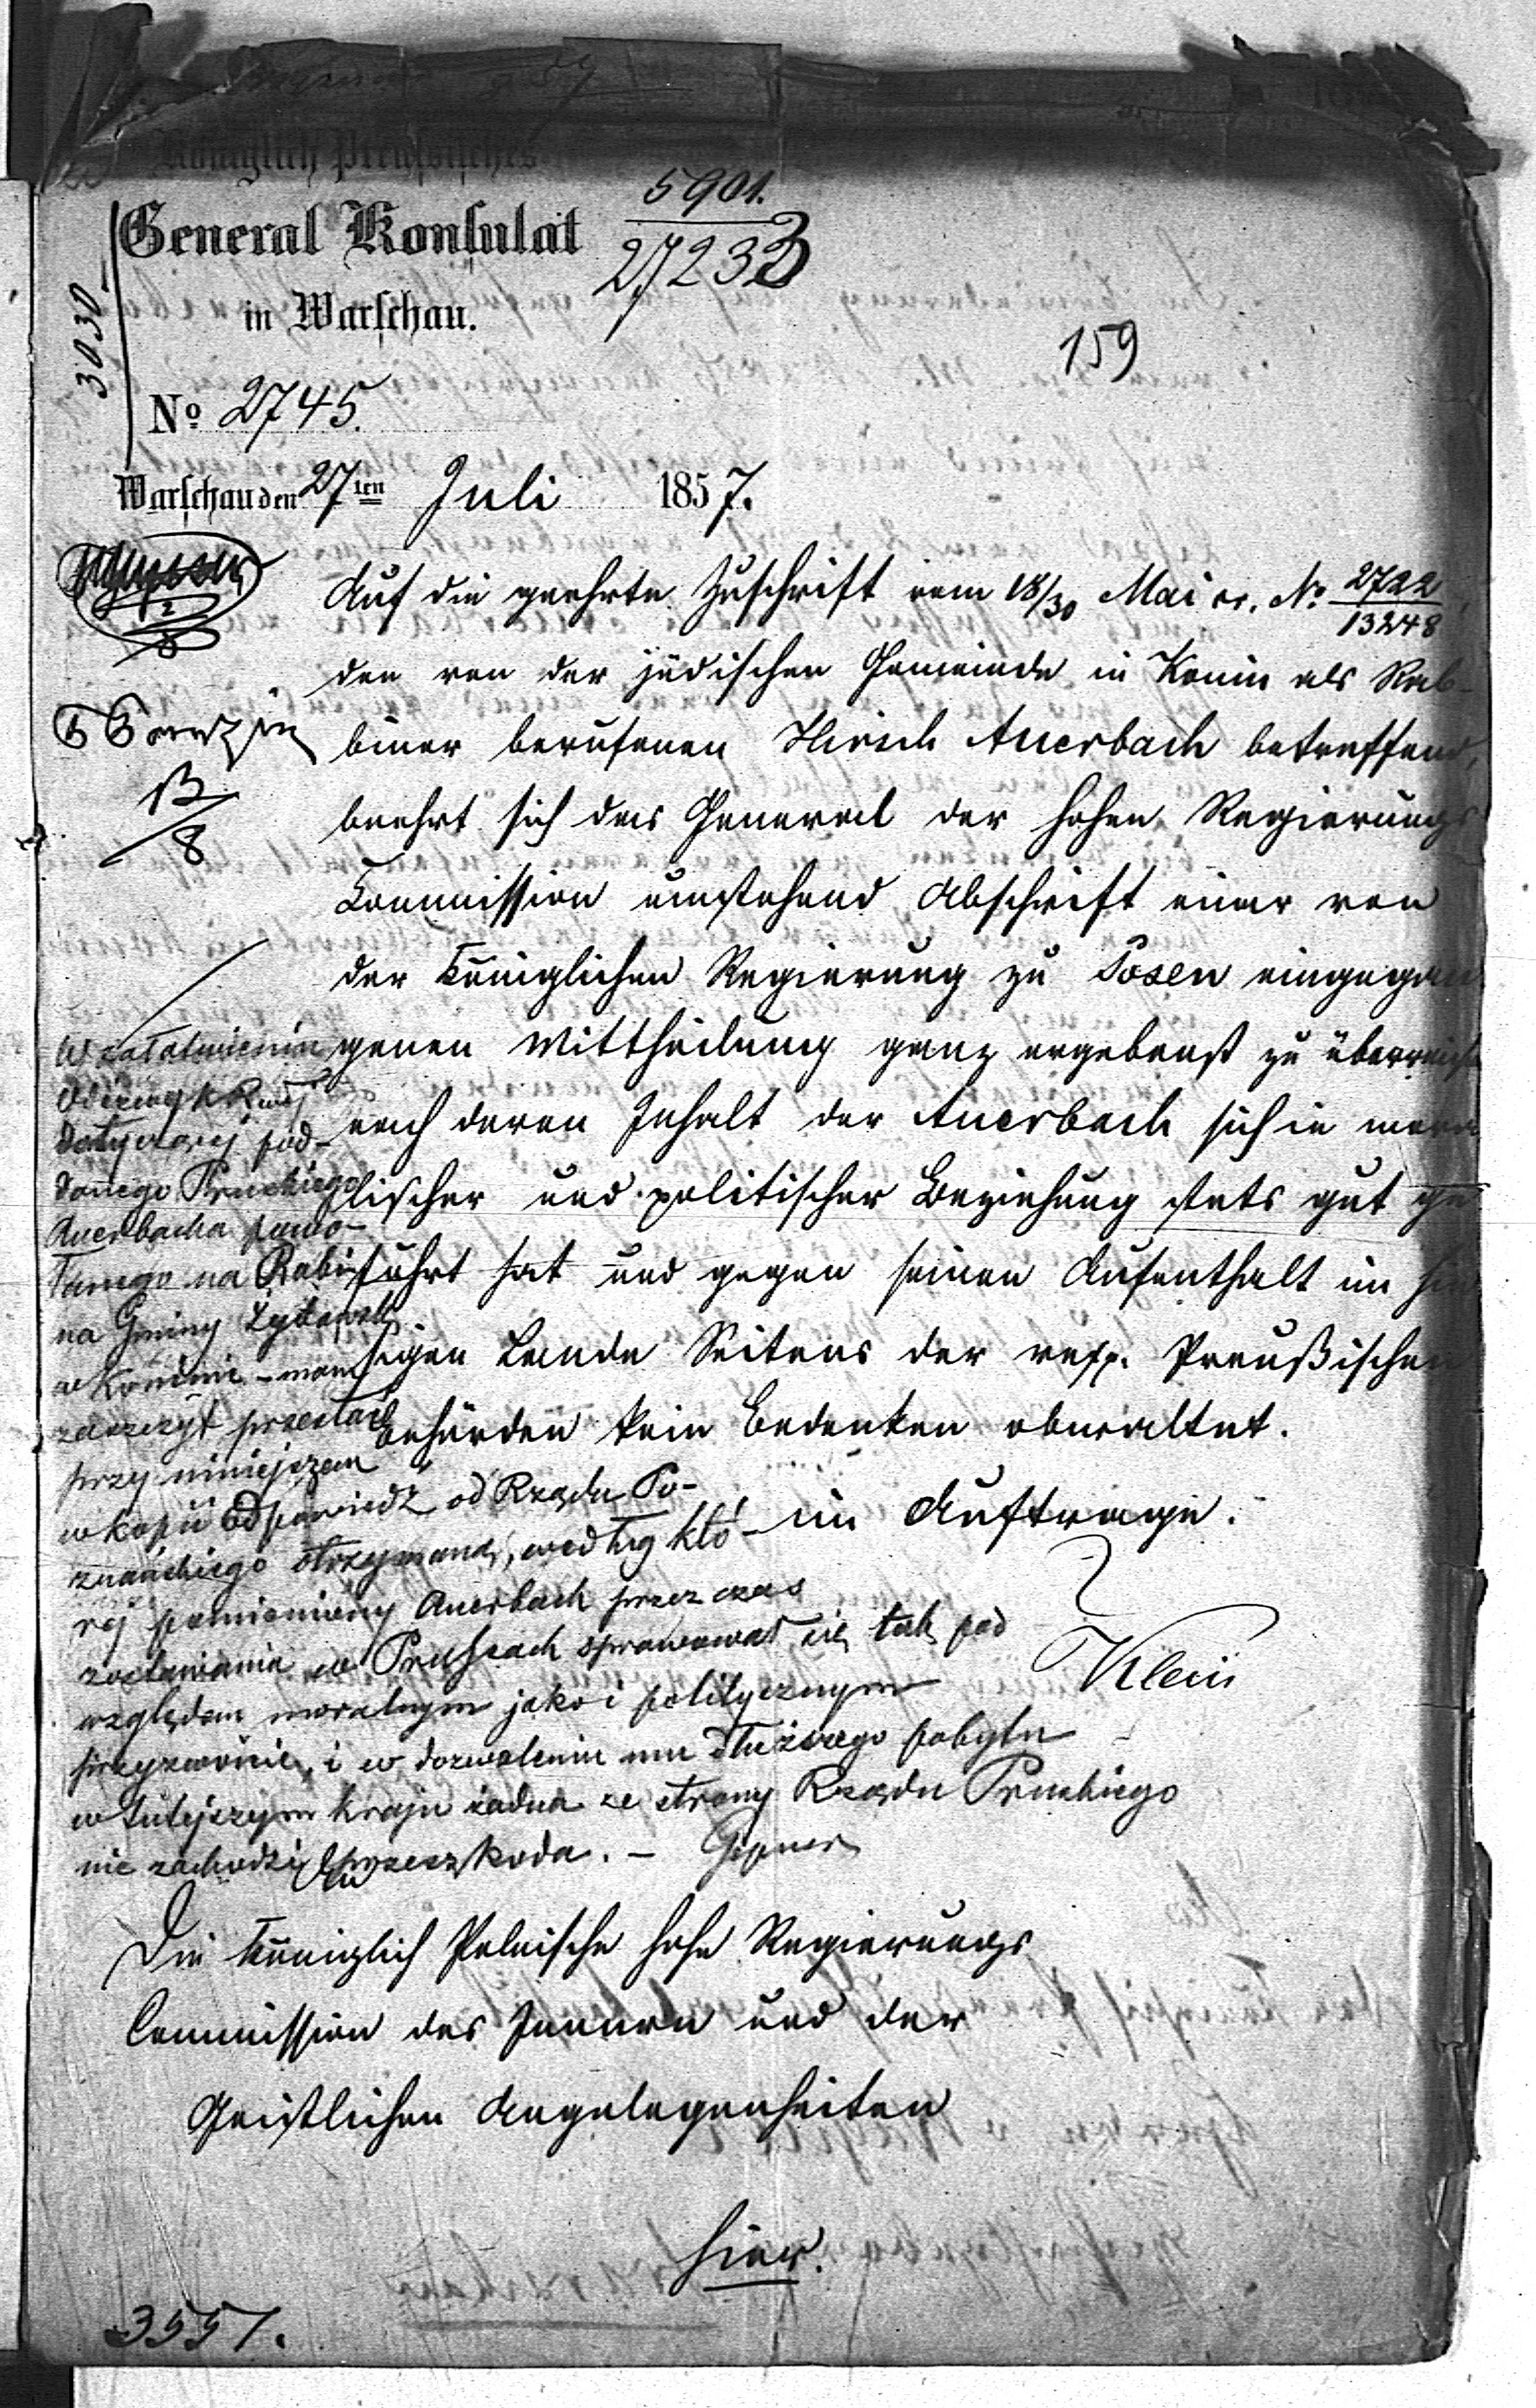 Königlich Preußisches
General Konsulat
in Warschau.
5901.
27233
3030
159
No 2745.
Warschau den 27ten Juli 1857.
Auf die geehrte Zuschrift vom 18/30 Mai cr. No 2722/13248,
den von der jüdischen Gemeinde in Konin als Rab-
biner berufenen Hirsch Auerbach betreffend,
beehrt sich das General der hohen Regierungs
Commission umstehend Abschrift einer von
der Königlichen Regierung zu Posen eingegan
genen Mittheilung ganz ergebenst zu überreichen
nach deren Inhalt der Auerbach sich in mora
lischer und politischer Beziehung stets gut ge
führt hat und gegen seinen Aufenthalt im hie
sigen Lande Seitens der resp. Preußischen
Behörden kein Bedenken obwaltet.
im Auftrage.
Klein
13/8
W załatwieniu
Odezwy K R
dotyczącej pod-
danego Pruskiego
Auerbacha powo-
łanego na Rabi
na Gminy Żydowsk
w Koninie – mam
zaszczyt przesłać
przy niniejszem
w kopii Odpowiedź od Rządu Po-
znańskiego otrzymaną, według któ-
rej pomieniony Auerbach przez czas
zostawania w Prusach sprawował się tak pod
względem moralnym jako i politycznym
przyzwoicie, i w dozwoleniu mu dłuższego pobytu
w tutejszym kraju żadna ze strony Rządu Pruskiego
nie zachodzi przeszkoda. –
An
Die Königlich Polnische hohe Regierungs
Commission des Innern und der
Geistlichen Angelegenheiten
hier.
3557.